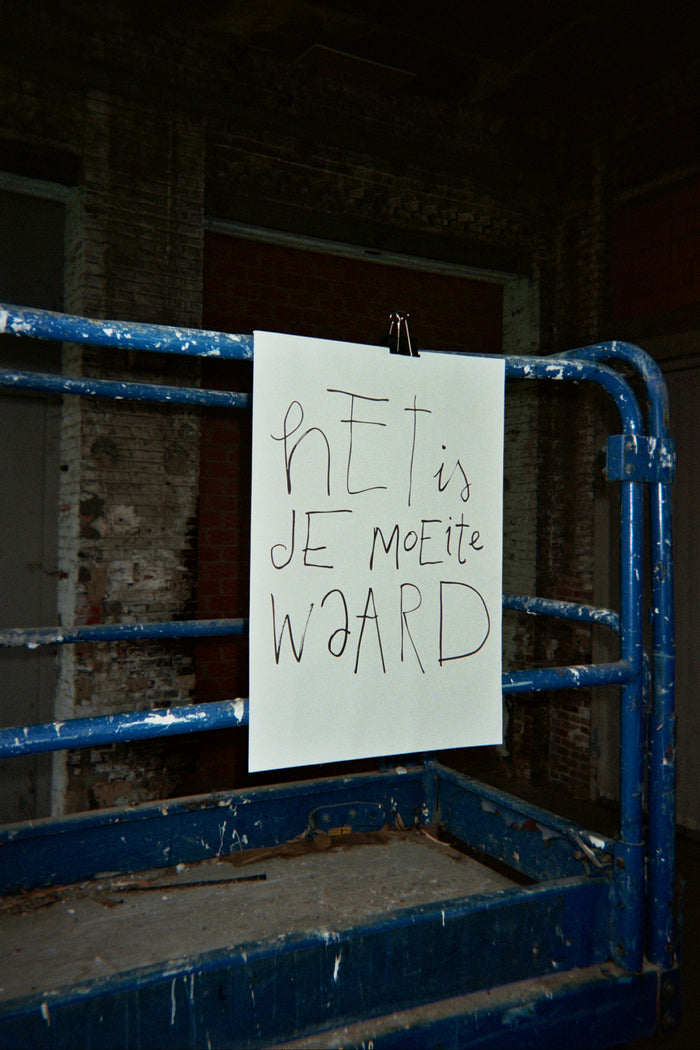 hET is
JE MOEite
WaARD